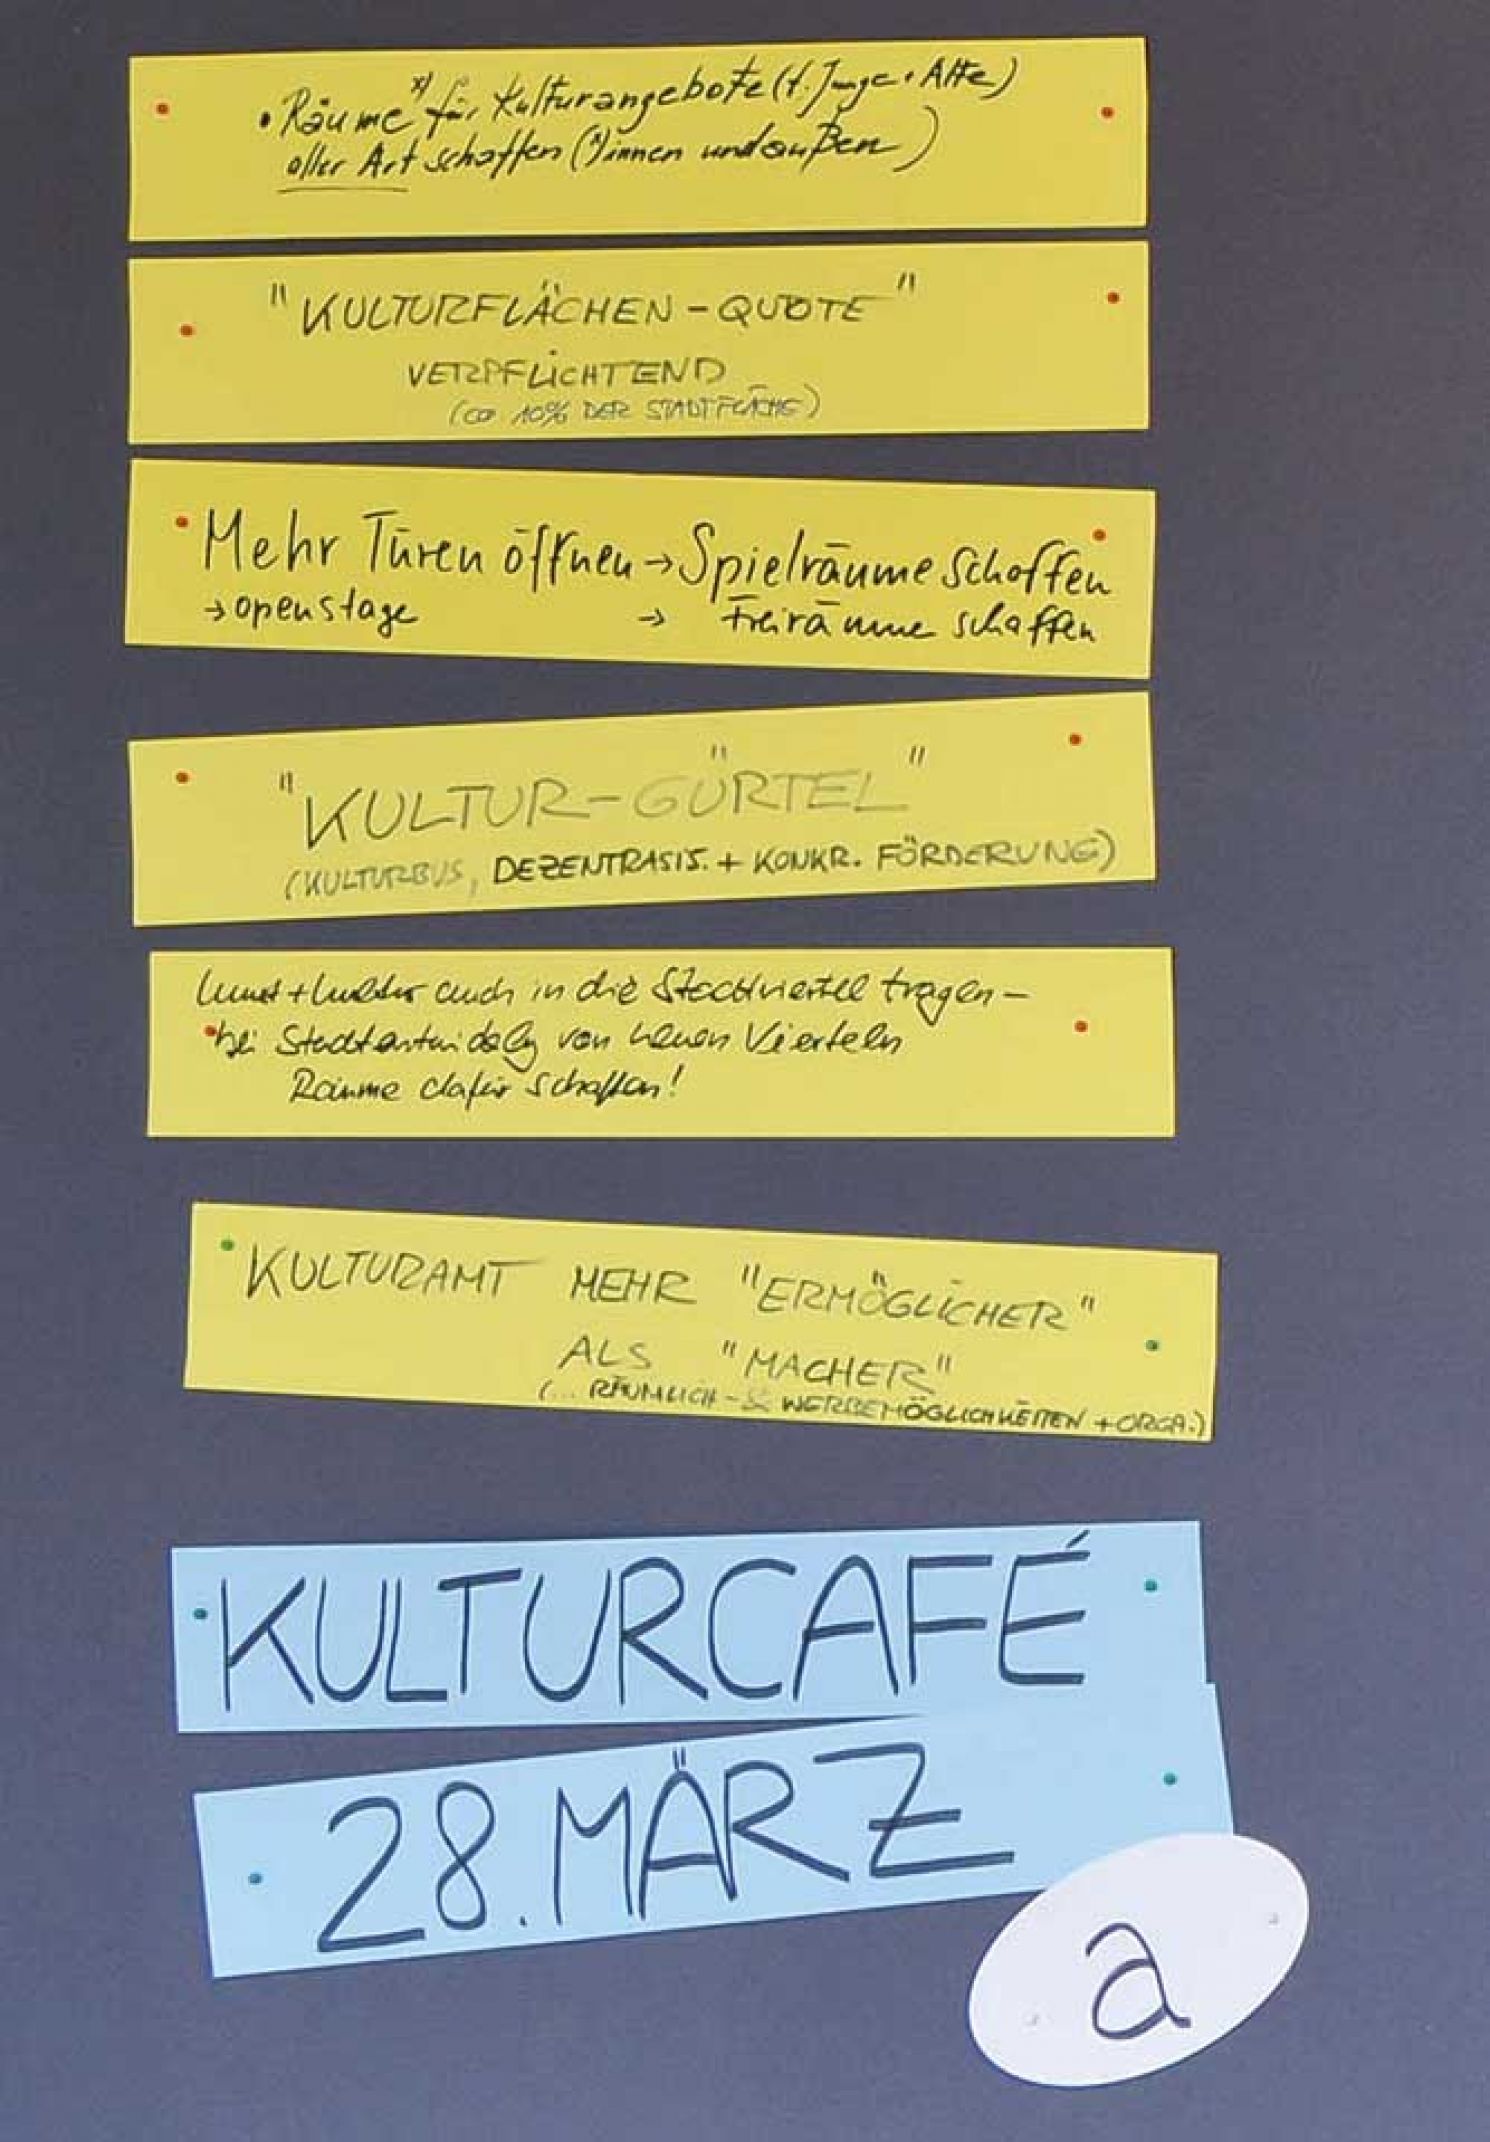 • Räume*) für Kulturangebote (f. Junge + Alte)
aller Art schaffen (*)innen und außen)
"KULTURFLÄCHEN-QUOTE"
VERPFLICHTEND
(ca 10% DER STADTFLÄCHE)
Mehr Türen öffnen → Spielräume schaffen
→ openstage → Freiräume schaffen
"KULTUR-GÜRTEL"
(KULTURBUS, DEZENTRASIS. + KONKR. FÖRDERUNG)
Kunst + Kultur auch in die Stadtviertel tragen –
bei Stadtentwicklg von neuen Vierteln
Räume dafür schaffen!
KULTURAMT MEHR "ERMÖGLICHER"
ALS "MACHER"
(... RÄUMLICH- WERBEMÖGLICHKEITEN + ORGA.)
KULTURCAFÉ
28. MÄRZ
a